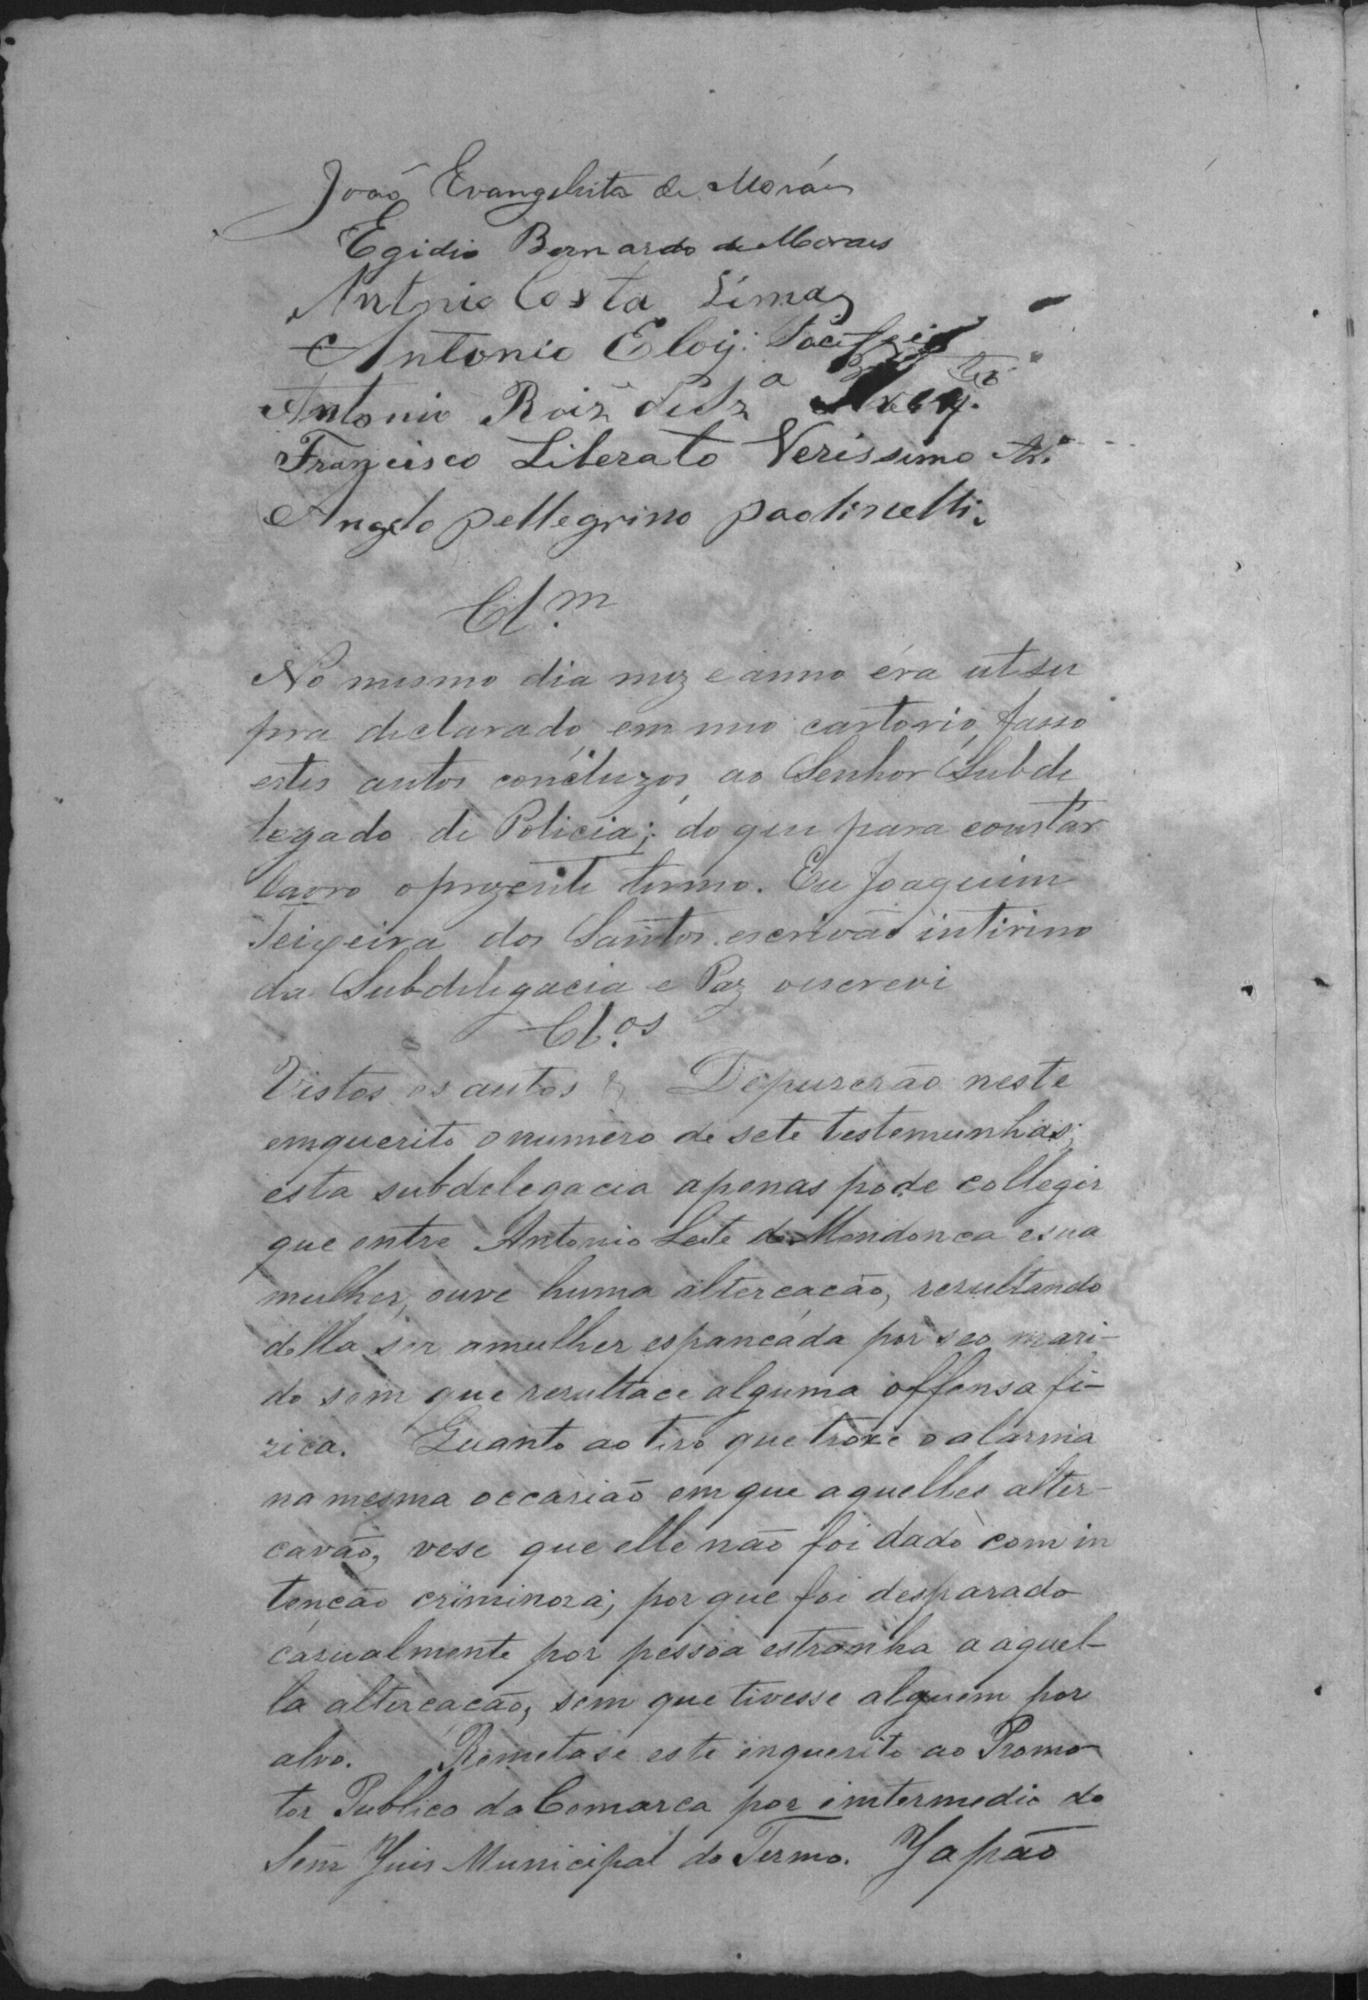 João Evangelista de Moráes
Egidio Bernardo de Moraes
Antonio Costa Lima
Antonio Eloy Pacifico
Antonio Roiz de Sza
Francisco Liberato Verissimo
Angelo pellegrino paolinelli.
Cl.m
No mesmo dia mez e anno éra ut su
pra declarado em meo cartorio, fasso
estes autos concluzos ao Senhor Subde
legado de Policia; do que para constár
lavro o prezente termo. Eu Joaquim
Teixeira dos Santos escrivão intirino
da Subdelegacia e Paz o escrevi
Cl.os
Vistos os autos & Depuzerão neste
emquerito o numero de sete testemunhas;
esta subdelegacia apenas pode collegir
que entre Antonio Leite de Mendonca e sua
mulher, ouve huma altercacão, rezultando
della ser a mulher espancáda por seo mari-
do sem que rezultace alguma offensa fi-
zica. Quanto ao tiro que troxe o alarma
na mesma occazião em que aquelles alter-
cavão, vese que elle não foi dado com in
tencão criminoza; por que foi desparado
cazualmente por pessoa estranha a aquel-
la altercacão, sem que tivesse alguem por
alvo. Remetase este inquerito ao Promo
tor Publico da Comarca por imtermedio do
Senr Juis Municipal do Termo. Japão